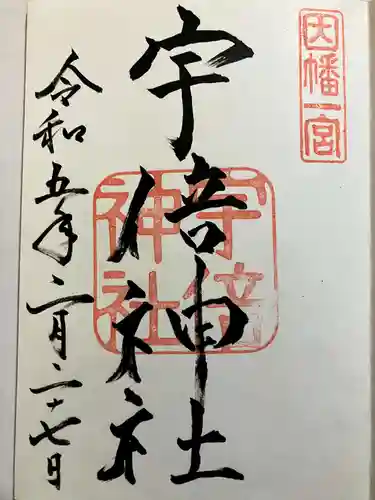 因幡一宮
宇倍神社
宇倍神社
令和五年二月二十七日